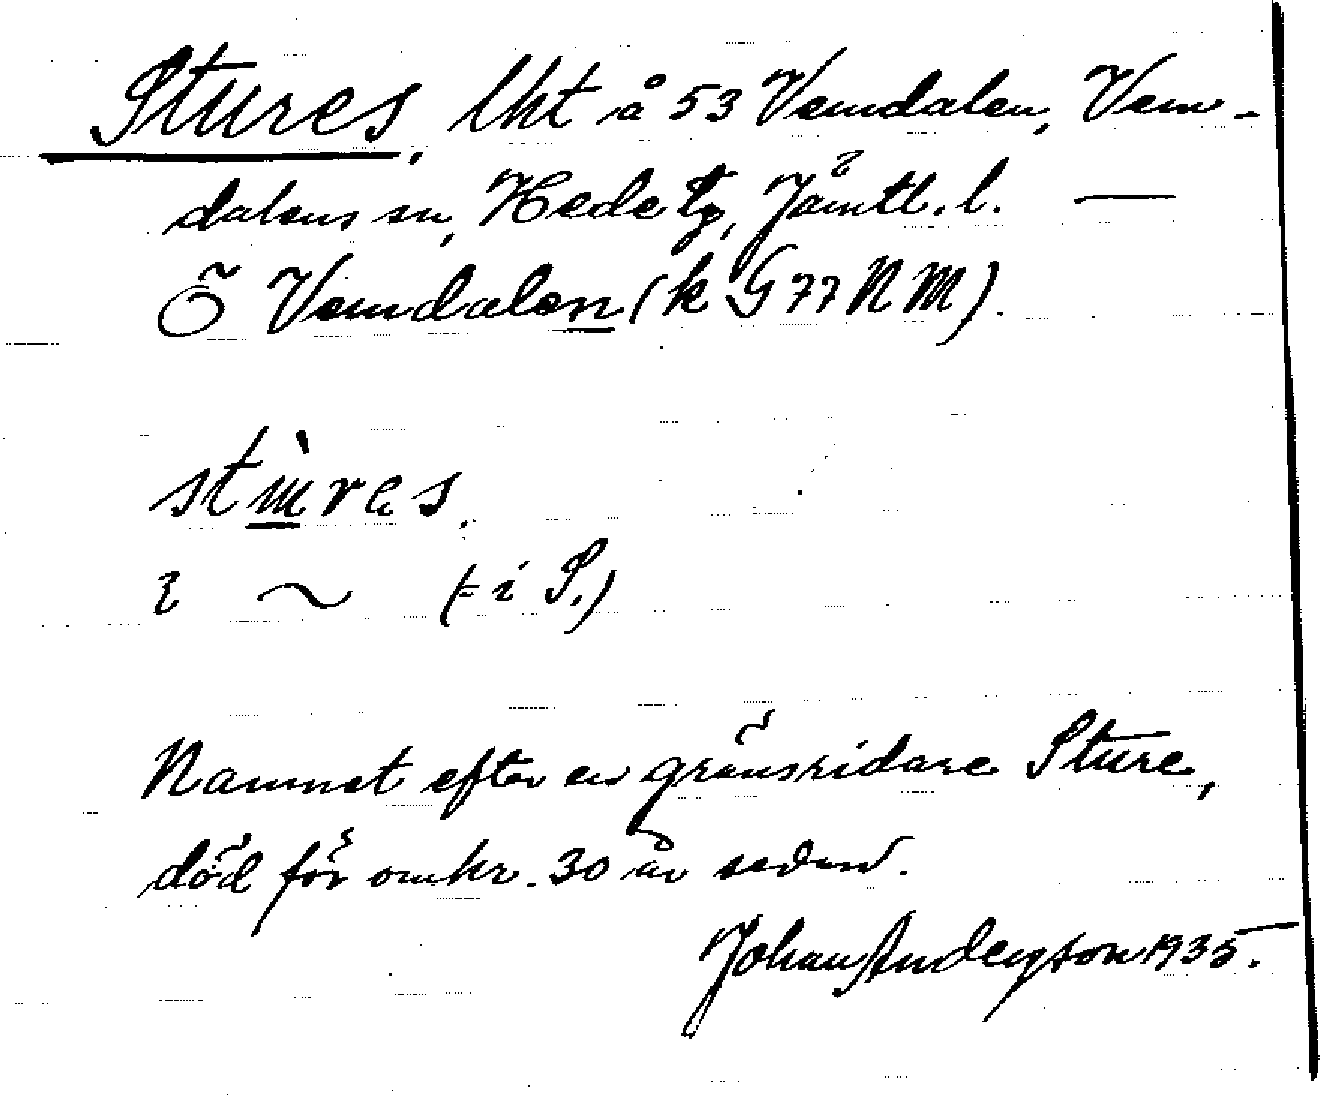 Stures, lht å 53 Vemdalen, Vem-
dalens sn, Hede tg, Jämtl. l. —
Ö Vemdalen (k G 77 N M).
stùres.
~ (= i S.)
Namnet efter en gränsridare Sture,
död för omkr. 30 år sedan.
Johan Anderson 1935.